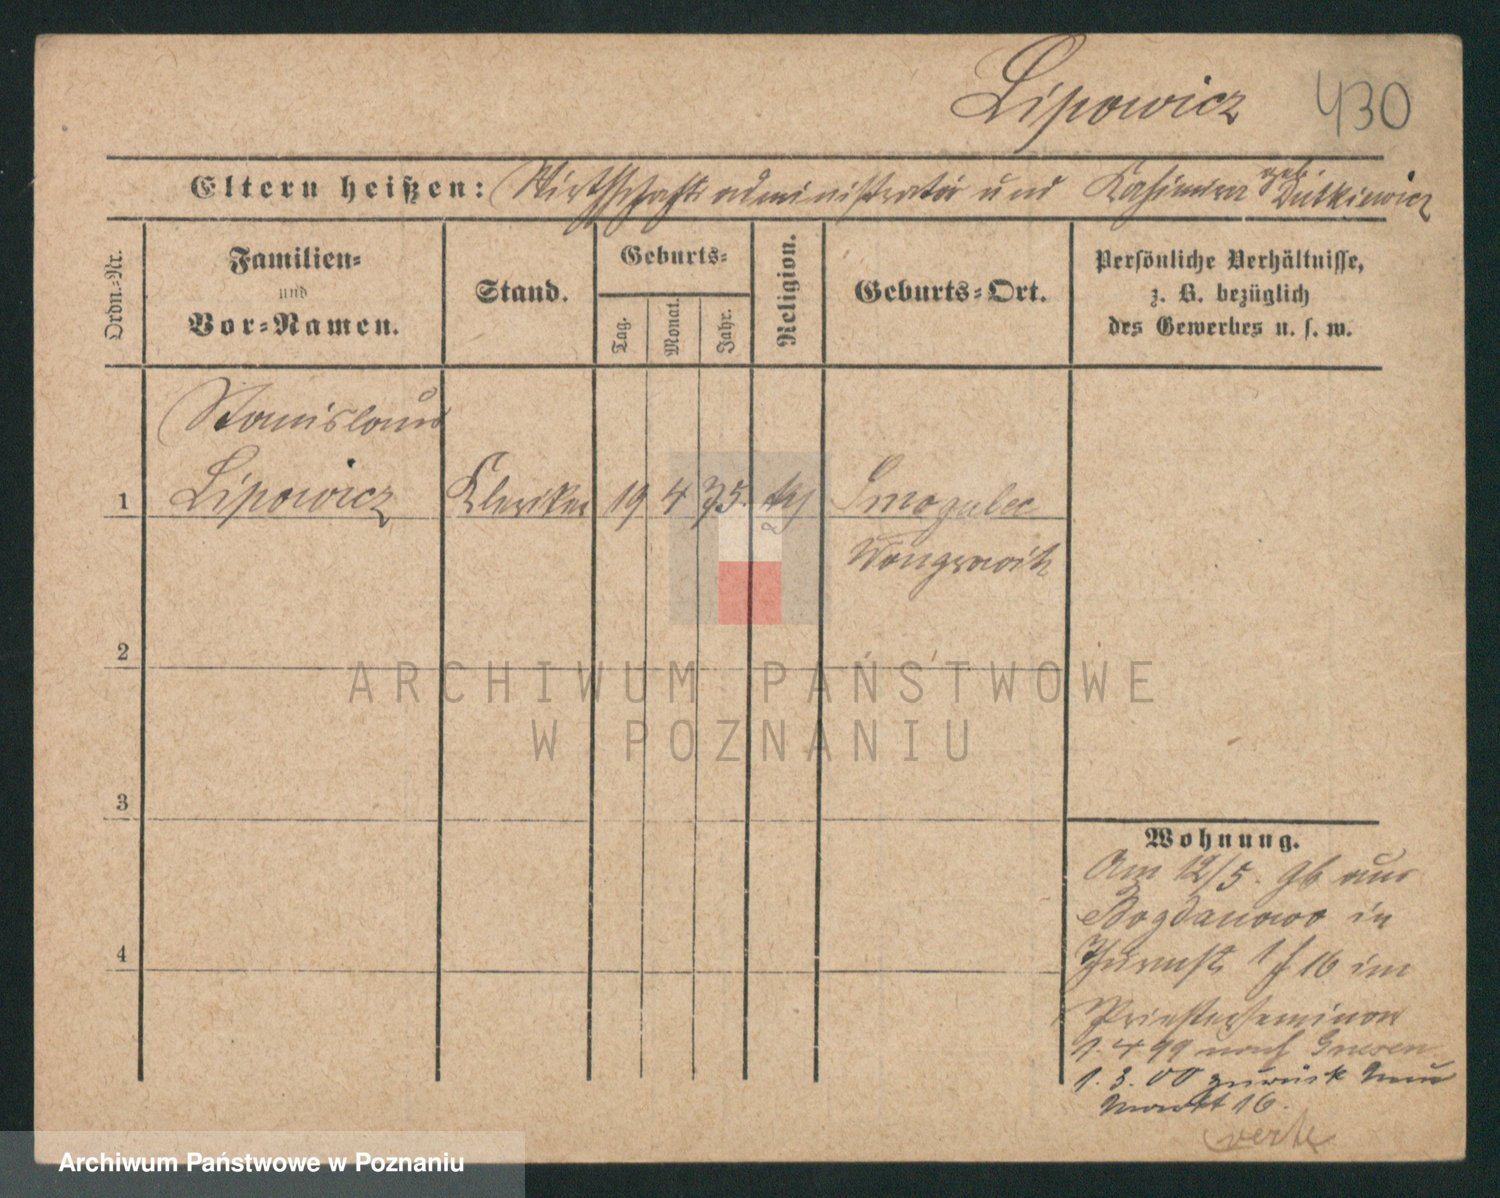 Lipowicz 430
Eltern heißen: Wirthschaftsadministrator und Kasimira geb. Dutkiewicz
Ordn.-Nr.
Familien-
und
Vor-Namen.
Stand.
Geburts-
Tag.
Monat.
Jahr.
Religion.
Geburts-Ort.
Persönliche Verhältnisse,
z. B. bezüglich
des Gewerbes u. s. w.
Stanislaus
1 Lipowicz Kleriker 19 4 75. kth Smogulec
Wongrowitz
2
ARCHIWUM PAŃSTWOWE
W POZNANIU
3
4
Wohnung.
Am 12/5. 96 aus
Bogdanowo in
16 im
Priesterseminar
1. 4 99 nach Gnesen
1. 3. 00 zurück Neu
Markt 16.
verte
Archiwum Państwowe w Poznaniu